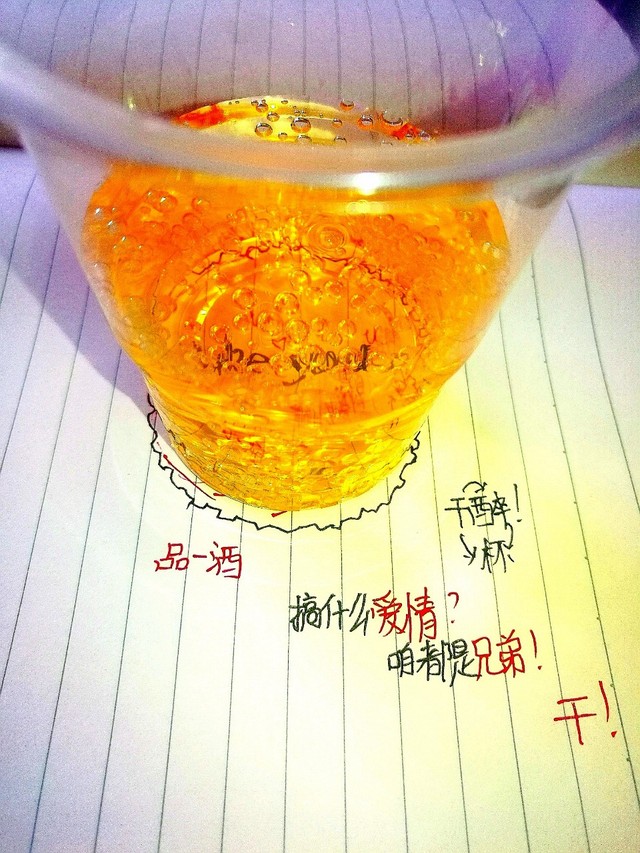 the
干醉!
杯
品一酒
搞什么爱情?
咱都是兄弟!
干!